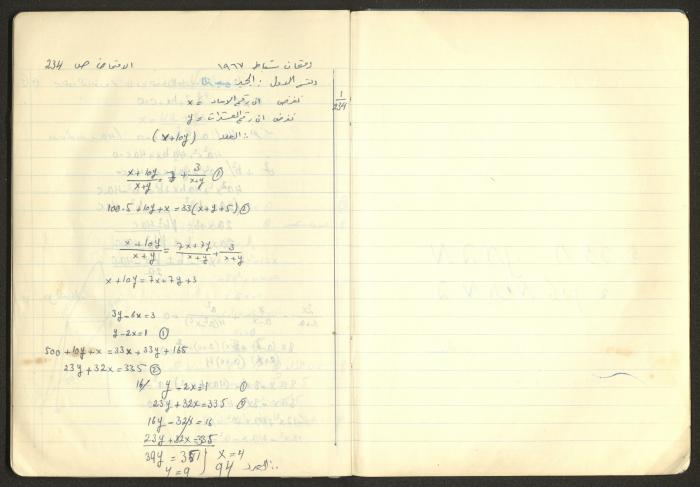 ١٩٦٧ الامتحان ص 234
القسم الاول : الجبر
1/234
نفرض ان رقم الاحاد = x
نفرض ان رقم العشرات = y
∴ العدد (x+10y)
(x+10y)/(x+y) = 7 + 3/(x+y) ①
100·5+10y+x=33(x+y+5) ②
(x+10y)/(x+y) = (7x+7y)/(x+y) + 3/(x+y)
x+10y=7x+7y+3
3y-6x=3
y-2x=1 ①
500+10y+x=33x+33y+165
23y+32x=335 ②
16/ y-2x=1 ①
23y+32x=335 ②
16y-32x=16
23y+32x=335
39y=351 x=4
y=9 94 ∴ العدد